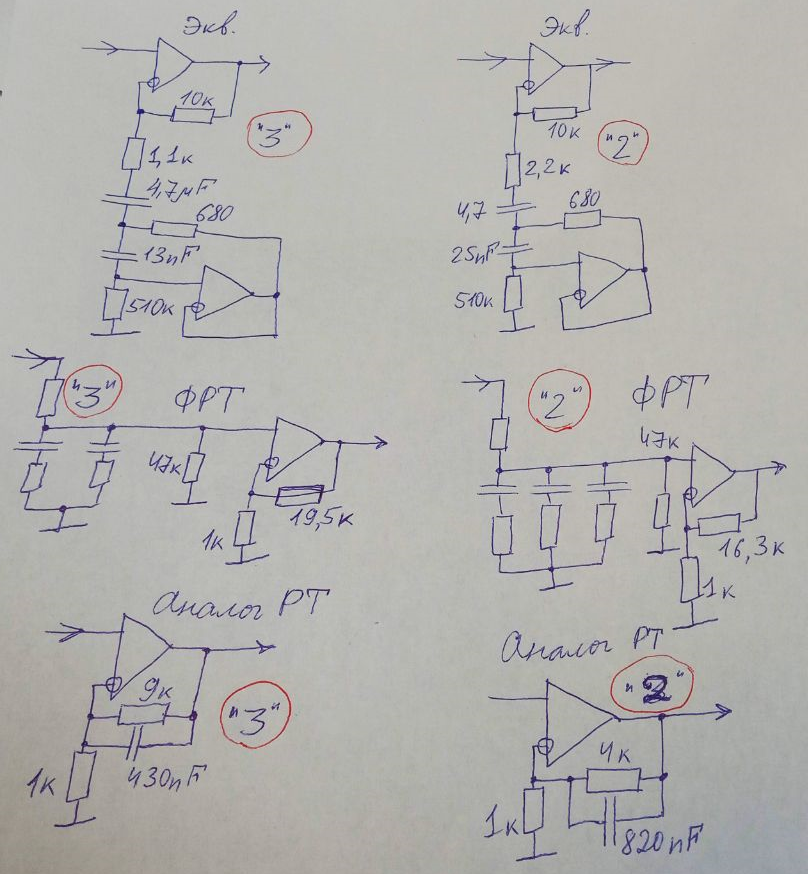 Экв.
10к
"3"
1,1к
4,7μF
680
13nF
510к
Экв.
10к
"2"
2,2к
4,7
680
25nF
510к
"3"
ФРТ
47к
1к
19,5к
"2"
ФРТ
47к
16,3к
1к
Аналог РТ
9к
"3"
1к
430nF
Аналог РТ
"2"
4к
1к
820nF